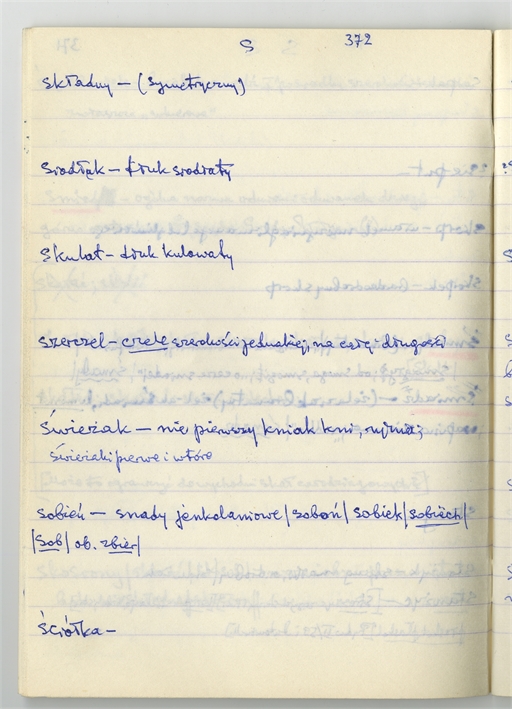 S 372
składny – (symetryczny)
siodłak – tłuk siodłaty
skulat – tłuk kulowaty
szerczel – czele szerokości jednakiej, na całej długości
świeżak – nie pierwszy kniak kni,
świeżaki perwe i wtóre
sobień – snady jenkolaniowe / soboń / sobiek / sobiech /
/ sob / ob. zbier /
ściółka –